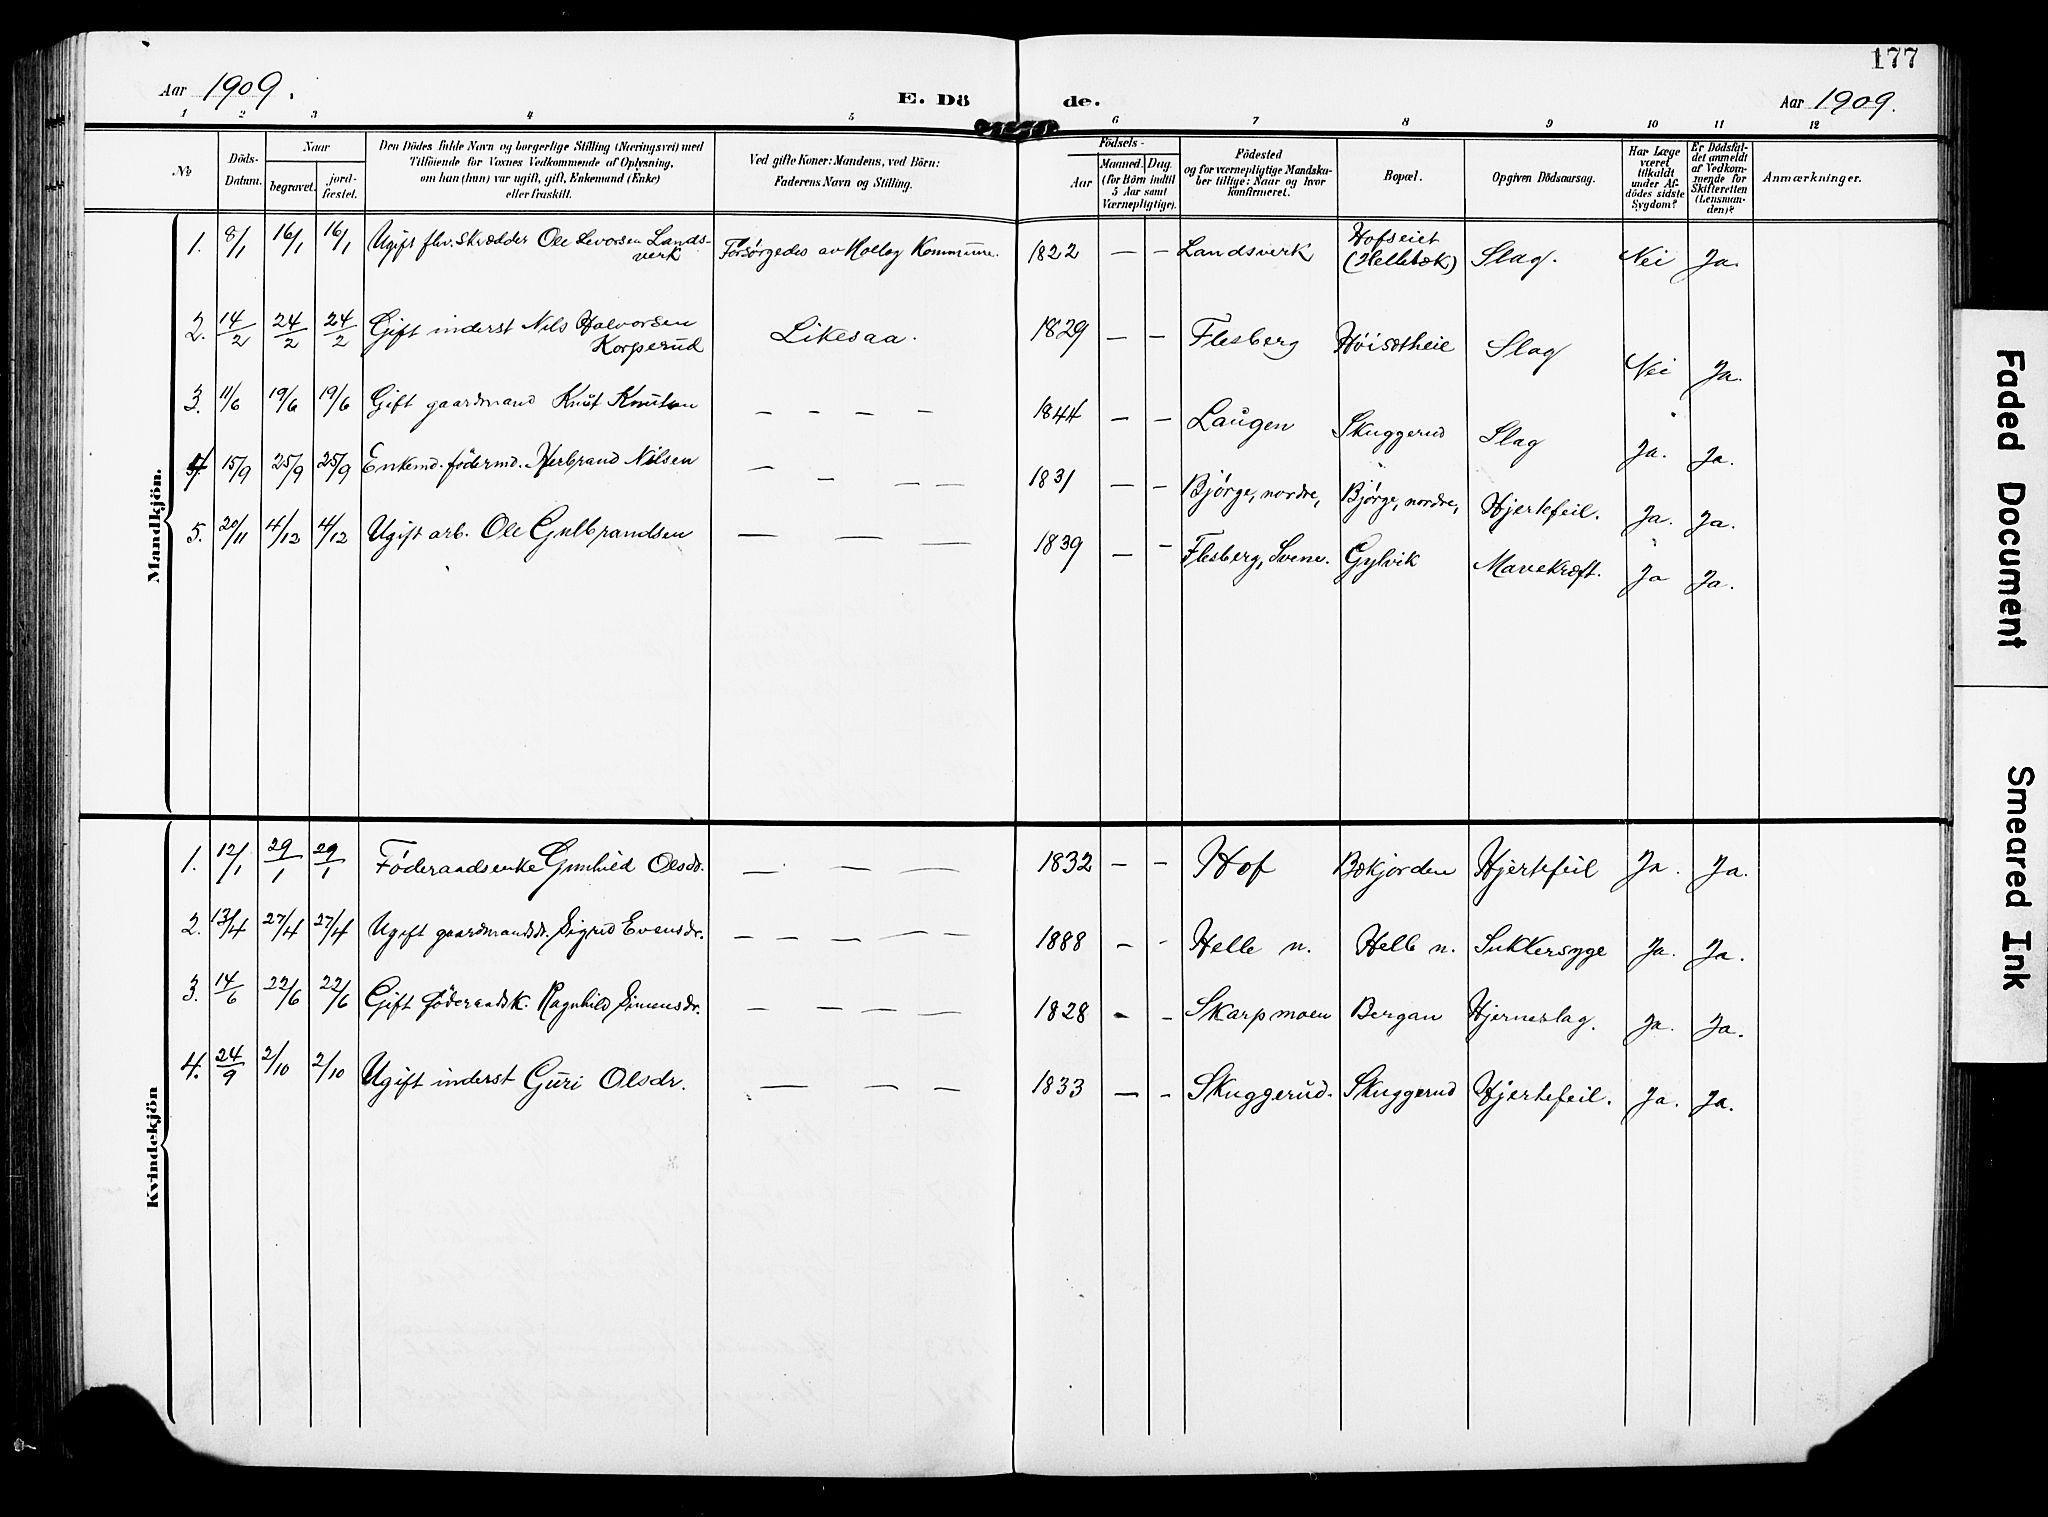 177
Aar 1909.
E. Dö de.
Aar 1909.
1 2 3 4 5 6 7 8 9 10 11 12
No
Döds-Datum.
Naar
begravet. jordfæstet.
Den Dödes fulde Navn og borgerlige Stilling (Næringsvei) med
Tilföiende for Voxnes Vedkommende af Oplysning,
om han (hun) var ugift, gift, Enkemand (Enke)
eller fraskilt.
Ved gifte Koner: Mandens, ved Börn:
Faderens Navn og Stilling.
Födsels-
Aar
Maaned. Dag.
(for Börn indtil
5 Aar samt
Værnepligtige).
Födested
og for værnepligtige Mandskaber tillige: Naar og hvor
konfirmeret.
Bopæl.
Opgiven Dödsaarsag.
Har Læge
været
tilkaldt
under Afdödes sidste
Sygdom?
Er Dödsfaldet anmeldt
af Vedkommende for
Skifteretten
(Lensmanden)?
Anmærkninger.
Mandkjön.
1. 8/1 16/1 16/1 Ugift flv. skrædder Ole Levorsen Landsverk Forsørgedes av Rollag Kommune. 1822 — — Landsverk Hofseiet (Hellebæk) Slag. Nei Ja.
2. 14/2 24/2 24/2 Gift inderst Nils Halvorsen Korperud Likesaa. 1829 — — Flesberg Høisætheie Slag Nei Ja.
3. 11/6 19/6 19/6 Gift gaardmand Knut Knutsen — — — — 1844 — — Laugen Skuggerud Slag Ja. Ja.
4. 15/9 25/9 25/9 Enkemd. födermd. Herbrand Nilsen — — — — 1831 — — Bjørge, nordre, Bjørge, nordre, Hjertefeil. Ja. Ja.
5. 20/11 4/12 4/12 Ugift arb. Ole Gulbrandsen — — — 1839 — — Flesberg, Svene. Gylvik Mavekræft. Ja Ja.
Kvindekjön
1. 12/1 29/1 29/1 Föderaadsenke Gunhild Olsdr. — — — 1832 — — Hof Bækjorden Hjertefeil Ja. Ja.
2. 13/4 27/4 27/4 Ugift gaardmandsdr. Sigrid Evensdr. — — — — — 1888 — — Helle n. Helle n. Sukkersyge Ja. Ja.
3. 14/6 22/6 22/6 Gift föderaadsk. Ragnhild Simensdr. — — — — 1828 — — Skarpmoen Bergan Hjerneslag. Ja. Ja.
4. 24/9 2/10 2/10 Ugift inderst Guri Olsdr. — — — 1833 — — Skuggerud. Skuggerud Hjertefeil. Ja. Ja.
Faded Document
Smeared Ink